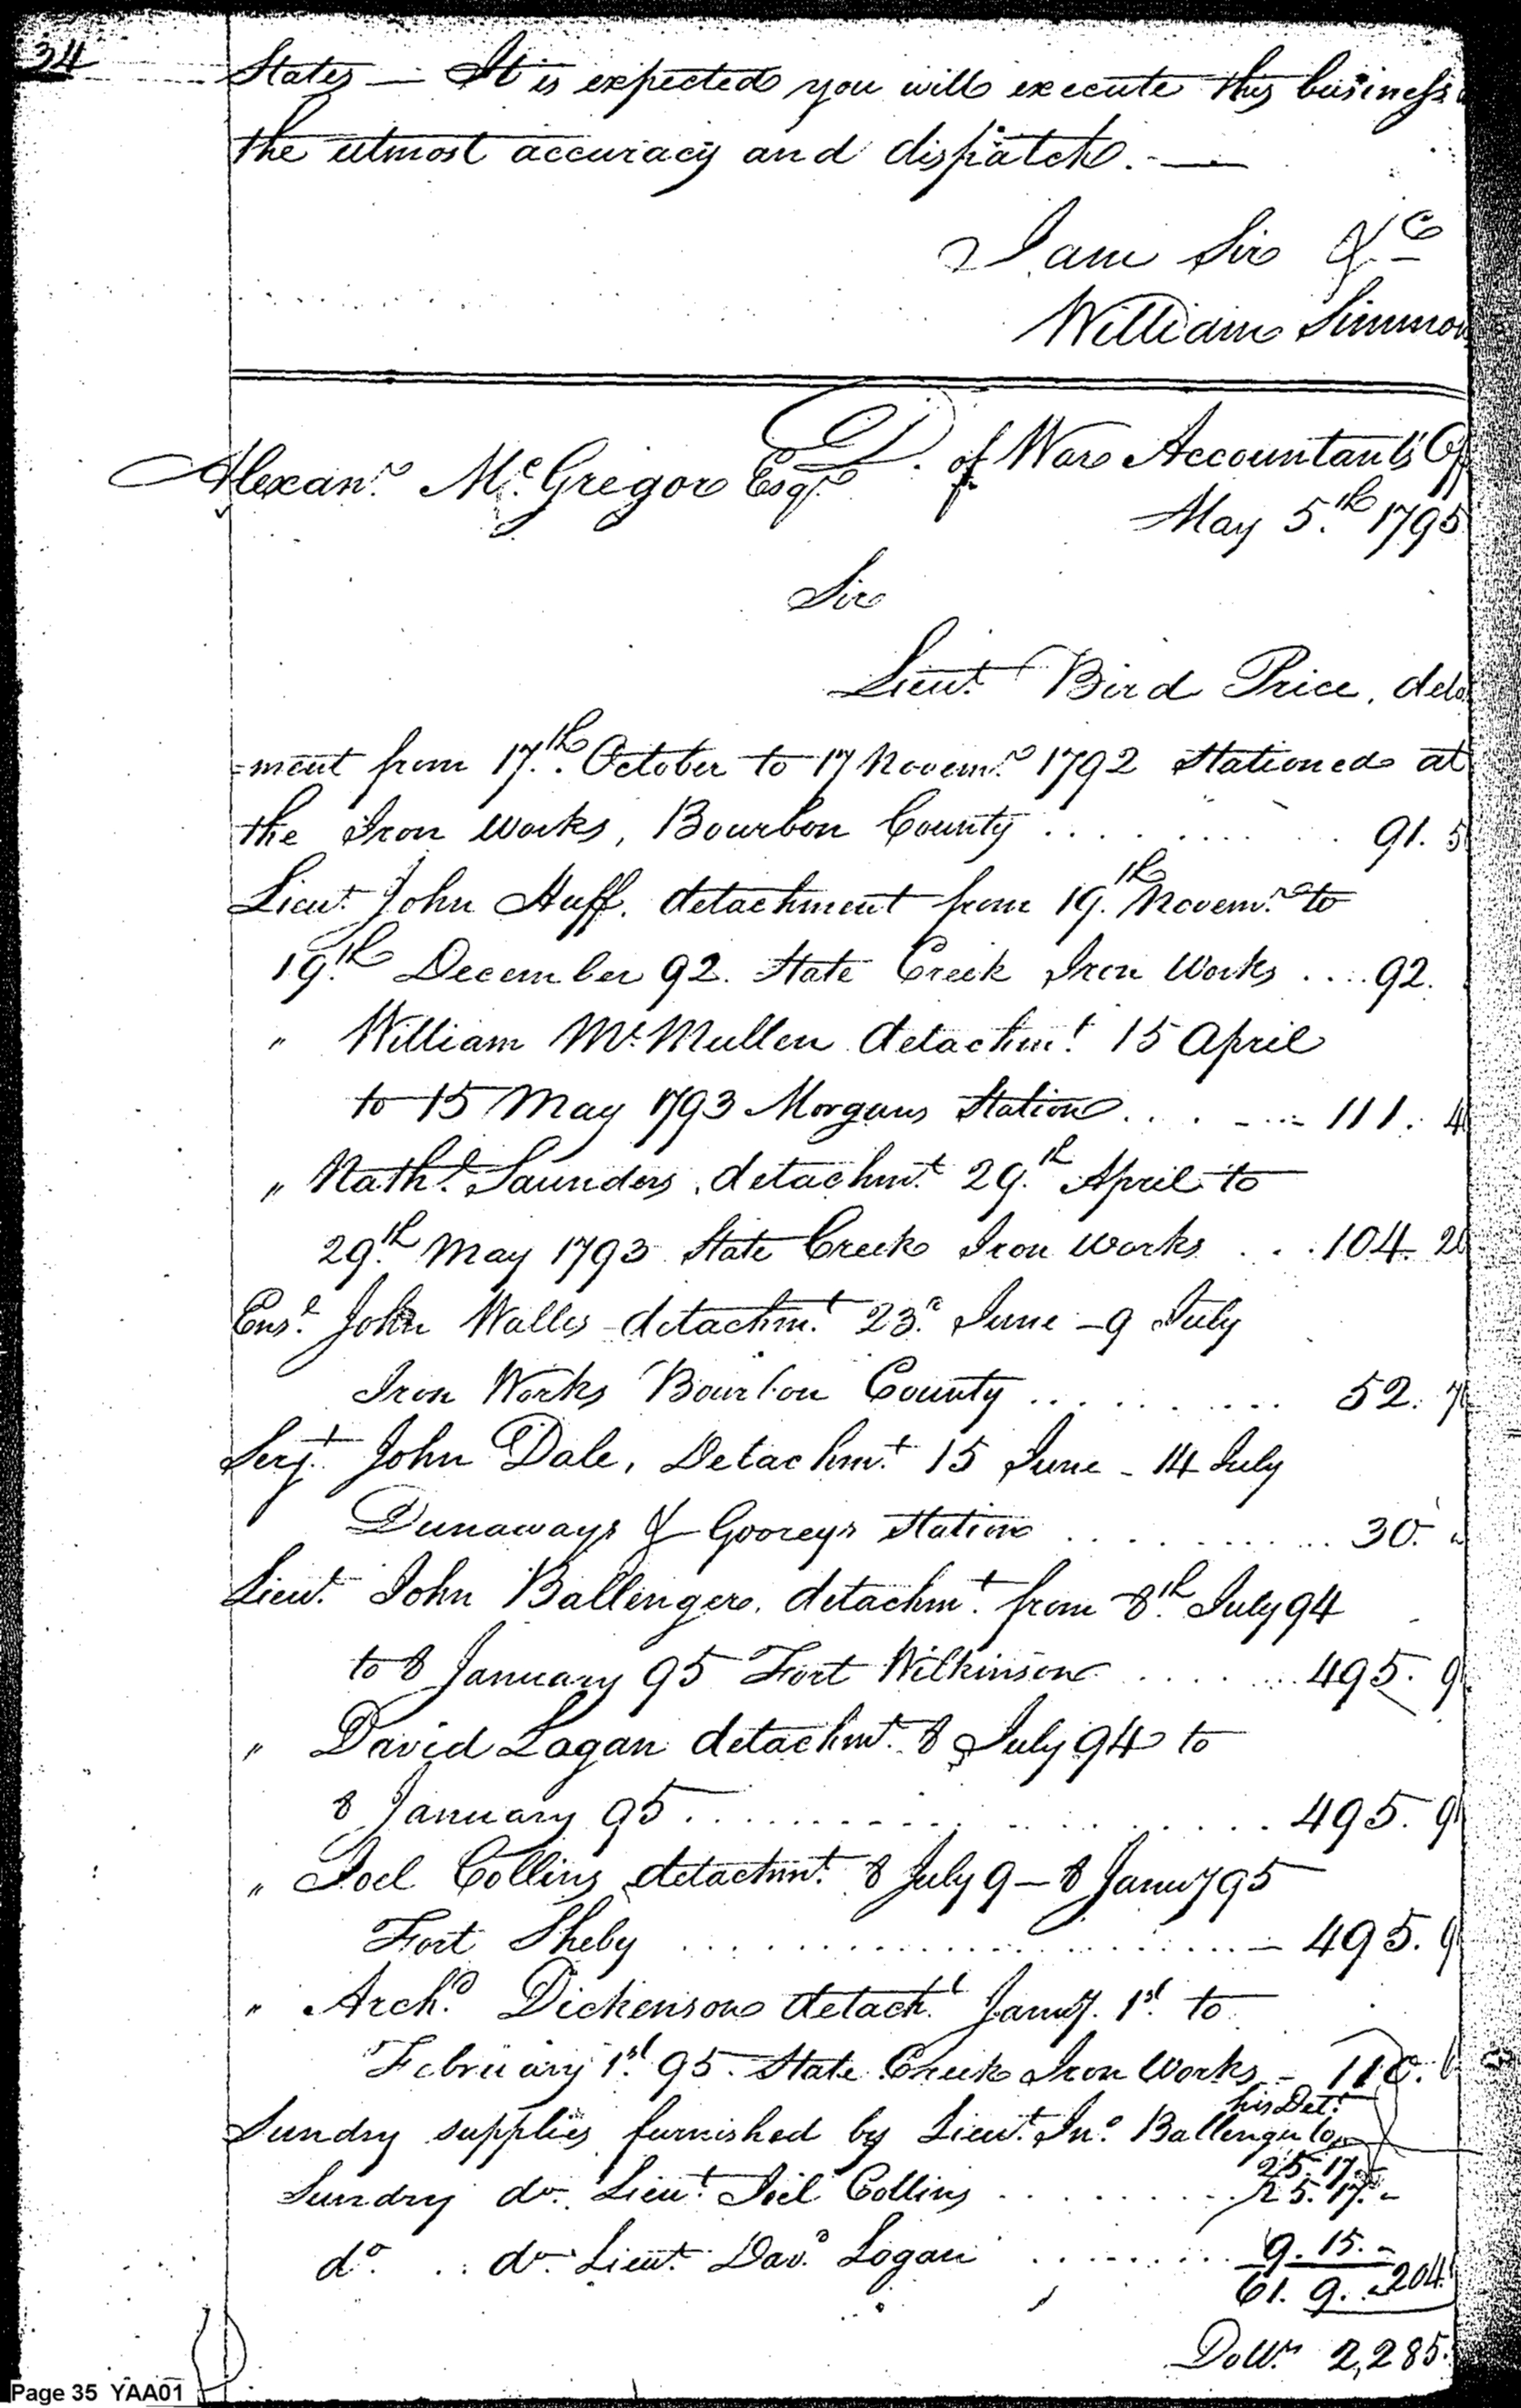 34
States — It is expected you will execute this business
the utmost accuracy and dispatch. —
I am Sir &c
William Simmon
D. of War Accountants Of
Alexanr. McGregor Esqr.
May 5.th 1795
Sir
Lieut. Bird Price, deta
=ment from 17.th October to 17 Novemr. 1792 Stationed at
the Iron Works, Bourbon County . . . . . . . . 91. 5
Lieut. John Huff. detachment from 19.th Novemr. to
19.th December 92. State Creek Iron Works . . . . 92.
" William Mc.Mullen detachmt. 15 April
to 15 May 1793 Morgans Station . . . . . . 111. 4
" Nathl. Saunders, detachmt. 29.th April to
29.th May 1793 State Creek Iron Works . . . 104. 20
Ensn. John Walls detachmt. 23.d June - 9 July
Iron Works Bourbon County . . . . . . . . . . 52. 7
Serjt. John Dale, Detachmt. 15 June - 14 July
Dunaways & Gooreys Station . . . . . . . . . . 30.
Lieut. John Ballenger. detachmt. from 8.th July 94
to 8 January 95 Fort Wilkinson . . . . . . 495. 9
" David Logan detachmt. 8 July 94 to
8 January 95 . . . . . . . . . . . . . . . . 495. 9
" Joel Collins detachmt. 8 July 9 — 8 Janury 95
Fort Sheby . . . . . . . . . . . . . . . . — 495. 9
" Archd. Dickenson detacht. January. 1st. to
February 1st. 95. State Creek Iron Works - 110.
his Det.
Sundry supplies furnished by Lieut. Jno. Ballenger to
25. 17. -
Sundry do. Lieut. Joel Collins . . . . . . . . 25. 17. -
do. . . do. Lieut. Davd. Logan . . . . . . . . 9. 15. -
61. 9. - 204.
Dollrs. 2,285.
Page 35 YAA01